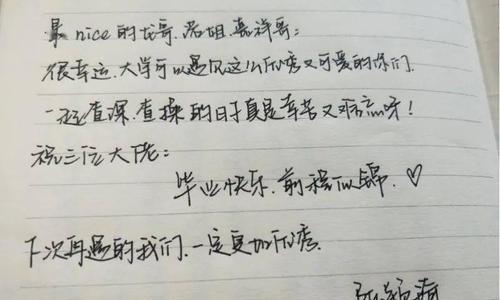 最nice的龙哥、浩姐、嘉祥哥:
很幸运、大学可以遇见这么优秀又可爱的你们.
一起查课、查操的日子真是辛苦又难忘呀!
祝三位大佬:
毕业快乐、前程似锦.♡
下次再遇的我们、一定更加优秀.